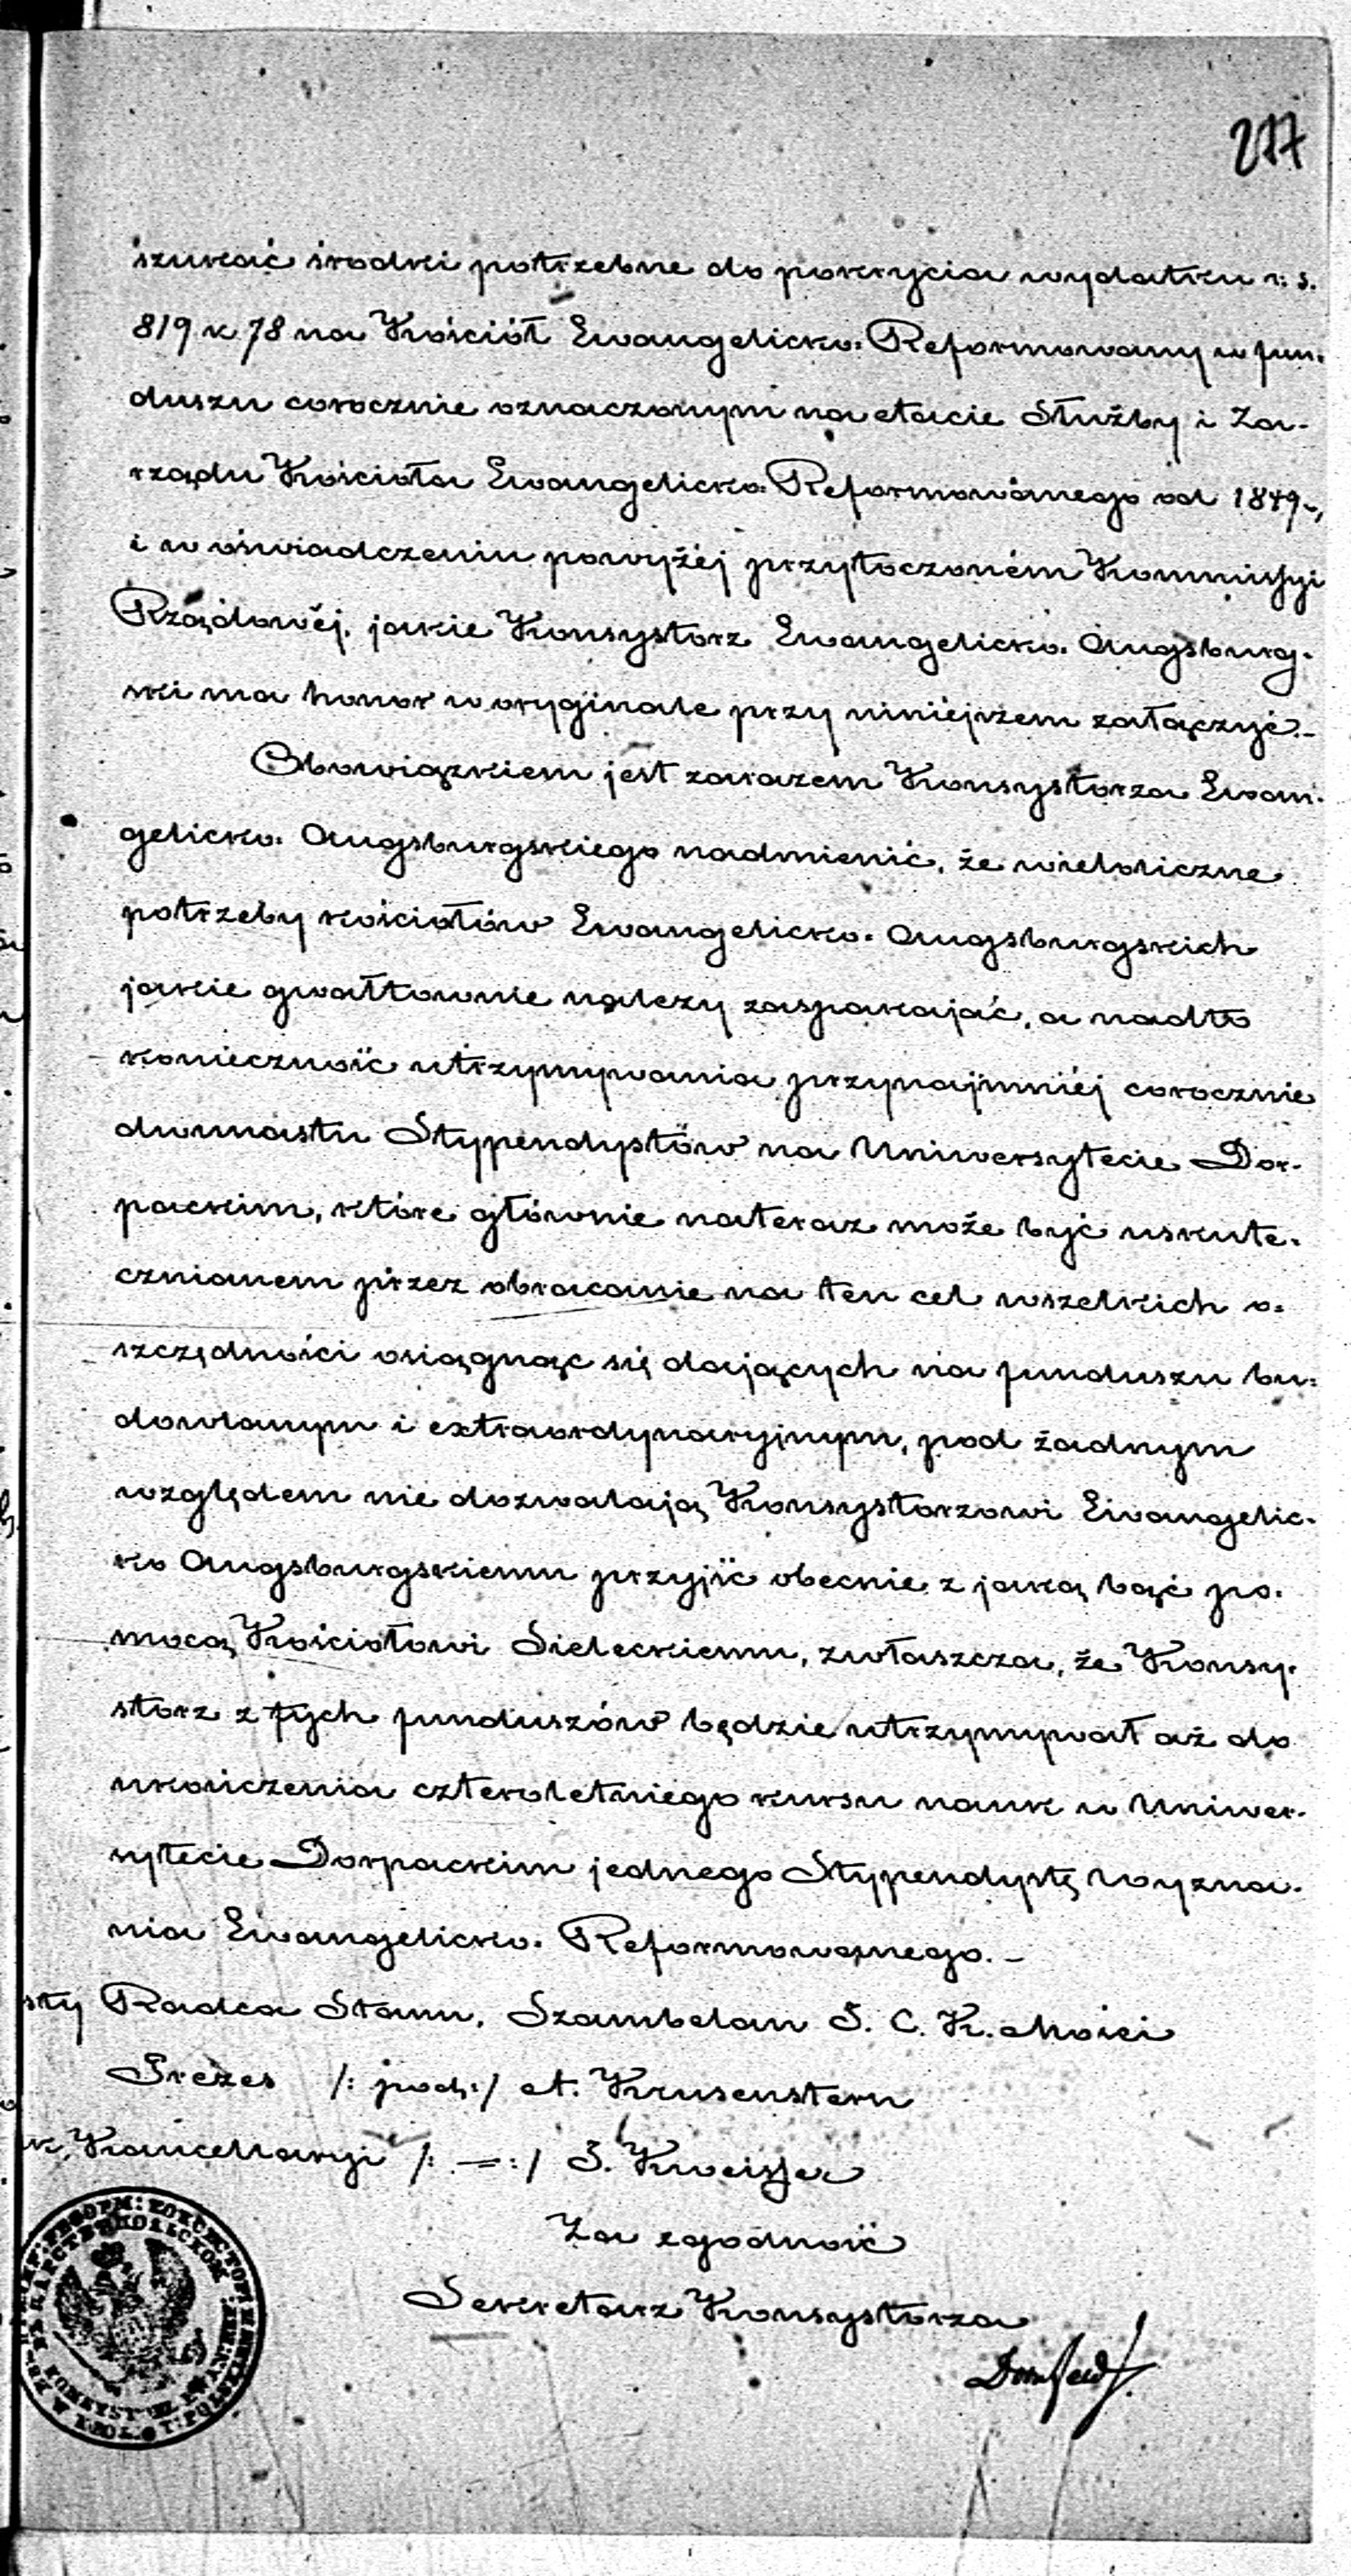 217
szukać środki potrzebne do pokrycia wydatku r: s.
819 k 78 na Kościół Ewangelicko-Reformowany w fun-
duszu corocznie oznaczonym na etacie Służby i Za-
rządu Kościoła Ewangelicko-Reformowanego od 1849 r,
i w oświadczeniu powyżéj przytoczoném Kommissyi
Rządowéj, jakie Konsystorz Ewangelicko-Augsburg-
ski ma honor w oryginale przy niniéjszem załączyć.-
Obowiązkiem jest zarazem Konsystorza Ewan-
gelicko-Augsburgskiego nadmienić, że wieloliczne
potrzeby kościołów Ewangelicko-Augsburgskich
jakie gwałtownie należy zaspakajać, a nadto
konieczność utrzymywania przynajmniéj corocznie
dwunastu Stypendystów na Uniwersytecie Dor-
packim, które głównie nateraz może być uskute-
cznianem przez obracanie na ten cel wszelkich o-
szczędności osiągnąć się dających na funduszu bu-
dowlanym i extraordynaryjnym, pod żadnym
względem nie dozwalają Konsystorzowi Ewangelic-
ko Augsburgskiemu przyjść obecnie z jaką bąć po-
mocą Kościołowi Sieleckiemu, zwłaszcza, że Konsy-
storz z tych funduszów będzie utrzymywał aż do
ukończenia czteroletniego kursu nauk w Uniwer-
sytecie Dorpackim jednego Stypendystę Wyzna-
nia Ewangelicko-Reformowanego.-
sty Radca Stanu, Szambelan J. C. K. Mości
Prezes /: podp:/ A. Krusenstern
k. Kancellaryi /: = :/ J. Kweisser
Za zgodność
Sekretarz Konsystorza